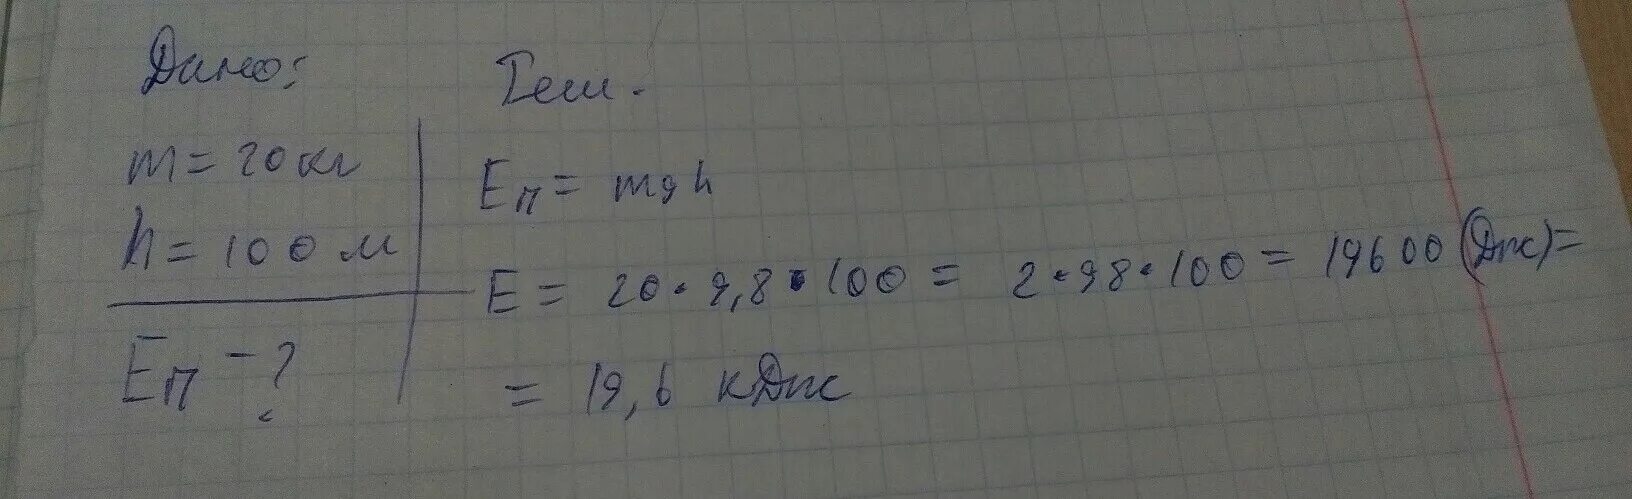 Дано:
m = 20 кг
h = 100 м
Eп - ?
Реш.
Eп = mgh
E = 20 · 9,8 · 100 = 2 · 98 · 100 = 19600 (Дж) =
= 19,6 кДж